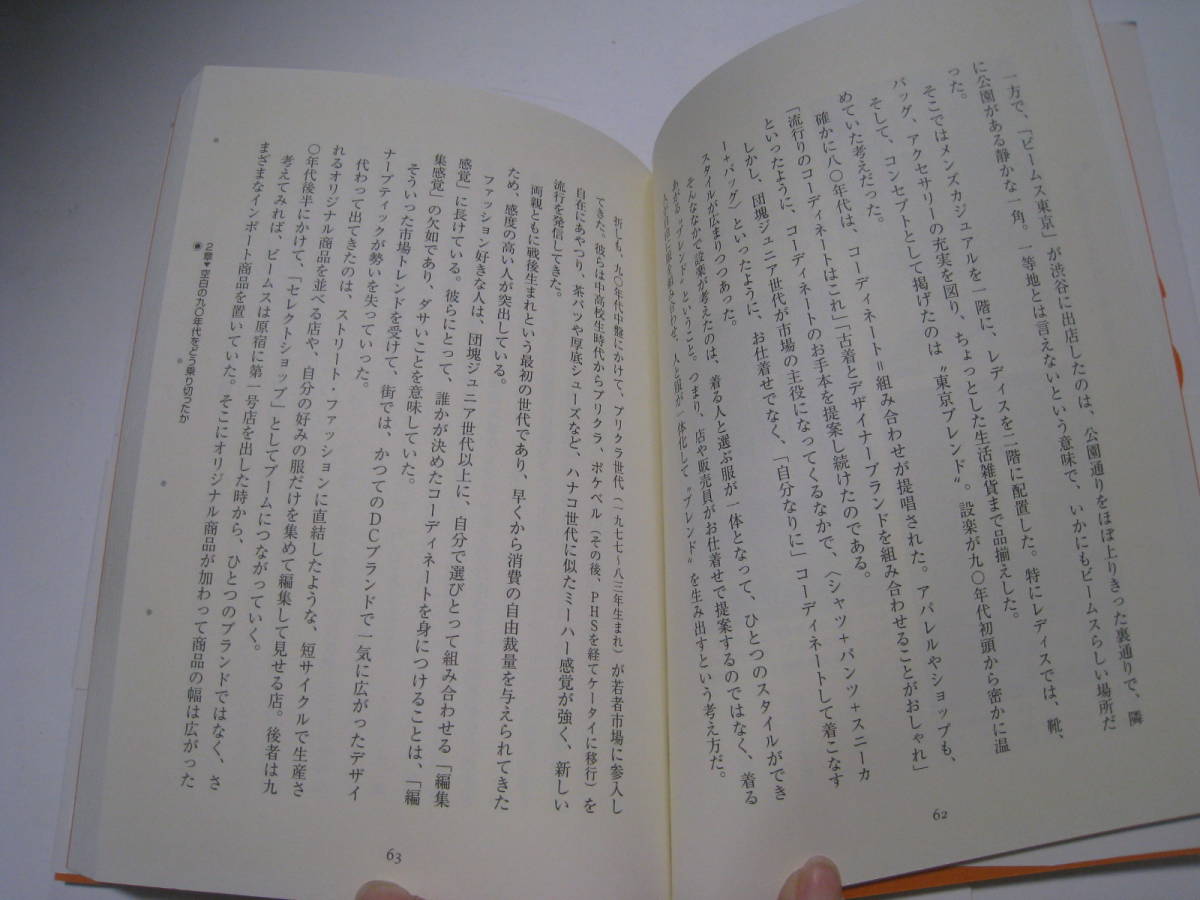 一方で、「ビームス東京」が渋谷に出店したのは、公園通りをほぼ上りきった裏通りで、隣
に公園がある静かな一角。一等地とは言えないという意味で、いかにもビームスらしい場所だ
った。
そこではメンズカジュアルを一階に、レディスを二階に配置した。特にレディスでは、靴、
バッグ、アクセサリーの充実を図り、ちょっとした生活雑貨まで品揃えした。
そして、コンセプトとして掲げたのは〝東京ブレンド〟。設楽が九〇年代初頭から密かに温
めていた考えだった。
確かに八〇年代は、コーディネート＝組み合わせが提唱された。アパレルやショップも、
「流行りのコーディネートはこれ」「古着とデザイナーブランドを組み合わせることがおしゃれ」
といったように、コーディネートのお手本を提案し続けたのである。
しかし、団塊ジュニア世代が市場の主役になってくるなかで、〈シャツ＋パンツ＋スニーカ
ー＋バッグ〉といったように、お仕着せでなく、「自分なりに」コーディネートして着こなす
スタイルが広まりつつあった。
そんななかで設楽が考えたのは、着る人と選ぶ服が一体となって、ひとつのスタイルができ
あがる〝ブレンド〟ということ。つまり、店や販売員がお仕着せで提案するのではなく、着る
人と服が一体化して〝ブレンド〟を生み出すという考え方だ。
62
折しも、九〇年代中盤にかけて、プリクラ世代（一九七七〜八三年生まれ）が若者市場に参入し
てきた。彼らは中高校生時代からプリクラ、ポケベル（その後、PHSを経てケータイに移行）を
自在にあやつり、茶パツや厚底シューズなど、ハナコ世代に似たミーハー感覚が強く、新しい
流行を発信してきた。
両親ともに戦後生まれという最初の世代であり、早くから消費の自由裁量を与えられてきた
ため、感度の高い人が突出している。
ファッション好きな人は、団塊ジュニア世代以上に、自分で選びとって組み合わせる「編集
感覚」に長けている。彼らにとって、誰かが決めたコーディネートを身につけることは、「編
集感覚」の欠如であり、ダサいことを意味していた。
そういった市場トレンドを受けて、街では、かつてのDCブランドで一気に広がったデザイ
ナーブティックが勢いを失っていった。
代わって出てきたのは、ストリート・ファッションに直結したような、短サイクルで生産さ
れるオリジナル商品を並べる店や、自分の好みの服だけを集めて編集して見せる店。後者は九
〇年代後半にかけて、「セレクトショップ」としてブームにつながっていく。
考えてみれば、ビームスは原宿に第一号店を出した時から、ひとつのブランドではなく、さ
まざまなインポート商品を置いていた。そこにオリジナル商品が加わって商品の幅は広がった
2章▼空白の九〇年代をどう乗り切ったか
63